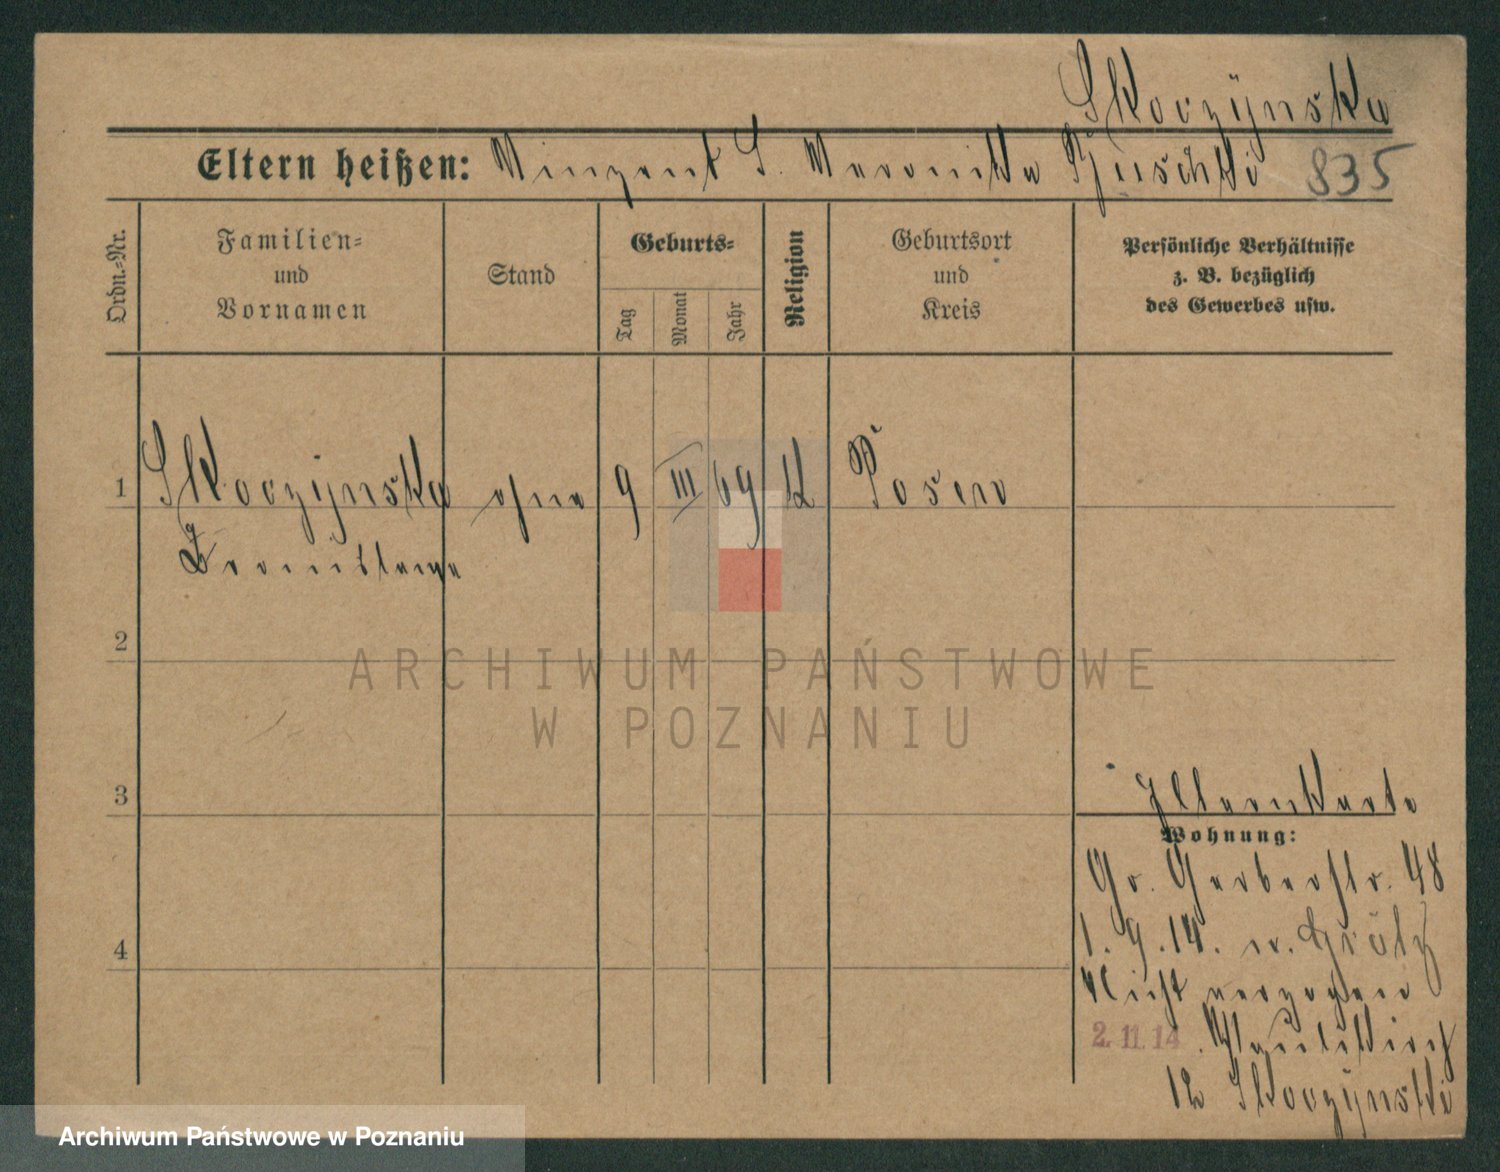 Skoczynska
Eltern heißen: Vinzent S. Veronika 835
Ordn.-Nr.
Familien-
und
Vornamen
Stand
Geburts-
Tag
Monat
Jahr
Religion
Geburtsort
und
Kreis
Persönliche Verhältnisse
z. B. bezüglich
des Gewerbes usw.
1 Skoczynska ohne 9 III 69 K Posen
Bronislawa
2
ARCHIWUM PAŃSTWOWE
W POZNANIU
3
Elternkarte
Wohnung:
Gr. Gerberstr. 48
1.9.14. n. Grätz
4
Nicht verzogen
2. 11. 14
12 Skoczynski
Archiwum Państwowe w Poznaniu